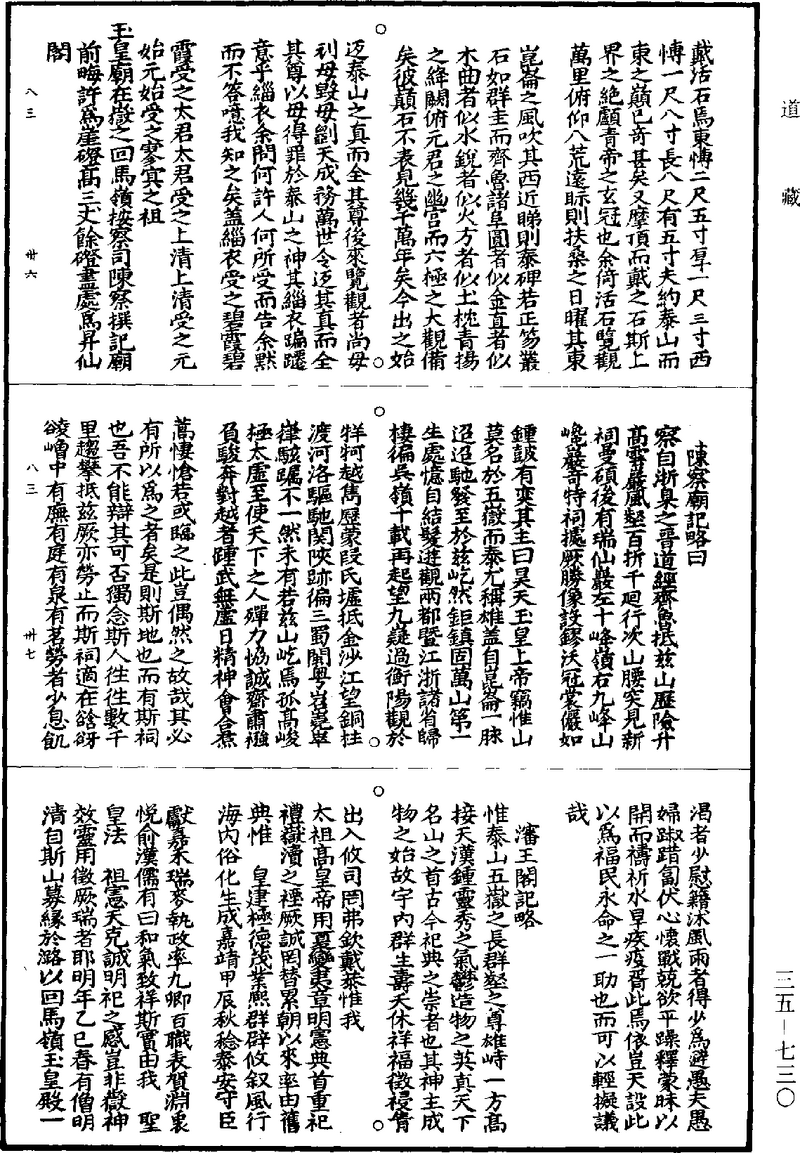 道藏
戴活石焉東博二尺五寸厚一尺三寸西
博一尺八寸長八尺有五寸夫約泰山而
東之巔已奇甚矣又摩頂而戴之石斯上
界之絕顱青帝之玄冠也余倚活石覽觀
萬里俯仰八荒遠眎則扶桑之日曜其東
崑崙之風吹其西近睇則泰碑若正笏叢
石如群圭而齊魯諸阜圓者似金直者似
木曲者似水銳者似火方者似土枕青揚
之絳闕俯元君之幽宮而六極之大觀備
矣彼巔石不表見幾千萬年矣今出之始
迓泰山之真而全其尊後來覽觀者尚毋
刓毋毀毋劉天成務萬世令迓其真而全
其尊以毋得罪於泰山之神其緇衣蹁躚
意乎緇衣余問何許人何所受而告余默
而不答噫我知之矣蓋緇衣受之碧霞碧
霞受之太君太君受之上清上清受之元
始元始受之寥寘之祖
玉皇廟在嶽之回馬嶺按察司陳察撰記廟
前晦許為崖磴高三丈餘磴盡處為昇仙
閣
八三
卅六
陳察廟記略曰
察自浙臬之晉道經齊魯抵茲山歷險升
高雩嚴風壑百折千迴行次山腰突見新
祠曼碩後有瑞仙巖左十峰嶺右九峰山
巉巖奇特祠據厥勝像設鏐沃冠裳儼如
鍾鼓有叜其主曰昊天玉皇上帝竊惟山
莫名於五嶽而泰尤稱雄蓋自崑崙一脉
迢迢馳發至於茲屹然鉅鎮固萬山第一
生處憶自結髮遊觀兩都暨江浙諸省歸
棲徧吳嶺千載再起望九嶷過衡陽觀於
牂牁越雋歷蒙段氏墟抵金沙江望銅柱
渡河洛驅馳関陝跡徧三蜀閩粵岩嶤崒
嵂駭矚不一然未有若茲山屹焉孤高峻
極太虛至使天下之人殫力協誠齋肅襁
負駿奔對越者踵武無虛日精神會合焄
蒿悽愴若或臨之此豈偶然之故哉其必
有所以為之者矣是則斯地也而有斯祠
也吾不能辯其可否獨念斯人往往數千
里趨攀抵茲厥亦勞止而斯祠適在谽谺
崚嶒中有廡有庭有泉有茗勞者少息飢
八三
卅七
渴者少慰籍沐風雨者得少為避愚夫愚
婦踧踖匐伏心懷戰兢欲平躁釋蒙昧以
開而禱祈水旱疾疫胥此焉依豈天設此
以為福民永命之一助也而可以輕擬議
哉
瀋王閣記略
惟泰山五嶽之長群壑之尊雄峙一方高
接天漢鍾靈秀之氣鬱造物之英真天下
名山之首古今祀典之崇者也其神主成
物之始故宇內群生壽夭休祥福徵祲眚
出入攸司罔弗欽戴恭惟我
太祖高皇帝用夏變夷章明憲典首重祀
禮嶽瀆之禋厥誠罔替累朝以來率由舊
典惟　皇建極德茂業熙群辟攸叙風行
海內俗化生成嘉靖甲辰秋稔泰安守臣
獻嘉禾瑞麥執政率九卿百職表賀淵衷
悅俞漢儒有曰和氣致祥斯實由我　聖
皇法　祖憲天克誠明祀之感豈非嶽神
效靈用徵厥瑞者耶明年乙巳春有僧明
清自斯山募緣於潞以回馬嶺玉皇殿一
三五—七三〇